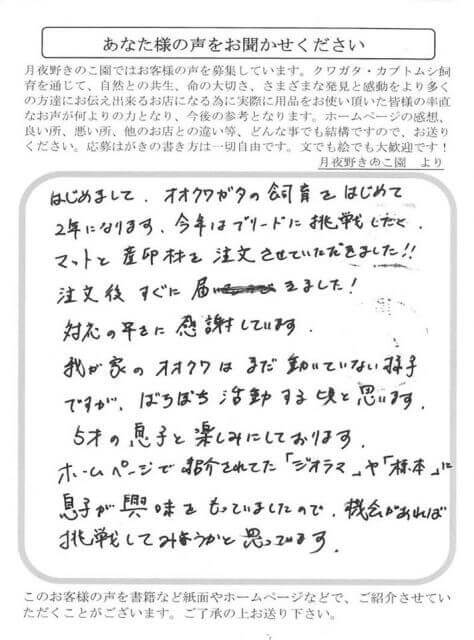 あなた様の声をお聞かせください
月夜野きのこ園ではお客様の声を募集しています。クワガタ・カブトムシ飼
育を通じて、自然との共生、命の大切さ、さまざまな発見と感動をより多く
の方達にお伝え出来るお店になる為に実際に用品をお使い頂いた皆様の率直
なお声が何よりの力となり、今後の参考となります。ホームページの感想、
良い所、悪い所、他のお店との違い等、どんな事でも結構ですので、お送り
ください。応募はがきの書き方は一切自由です。文でも絵でも大歓迎です！
月夜野きのこ園 より
はじめまして、オオクワガタの飼育をはじめて
2年になります。今年はブリードに挑戦したく、
マットと産卵材を注文させていただきました!!
注文後すぐに届きました!
対応の早さに感謝しています。
我が家のオオクワはまだ動いていない様子
ですが、ぼちぼち活動する頃と思います。
5才の息子と楽しみにしております。
ホームページで紹介されてた「ジオラマ」や「標本」に
息子が興味をもっていましたので、機会があれば
挑戦してみようかと思ってます。
このお客様の声を書籍など紙面やホームページなどで、ご紹介させてい
ただくことがございます。ご了承の上お送り下さい。